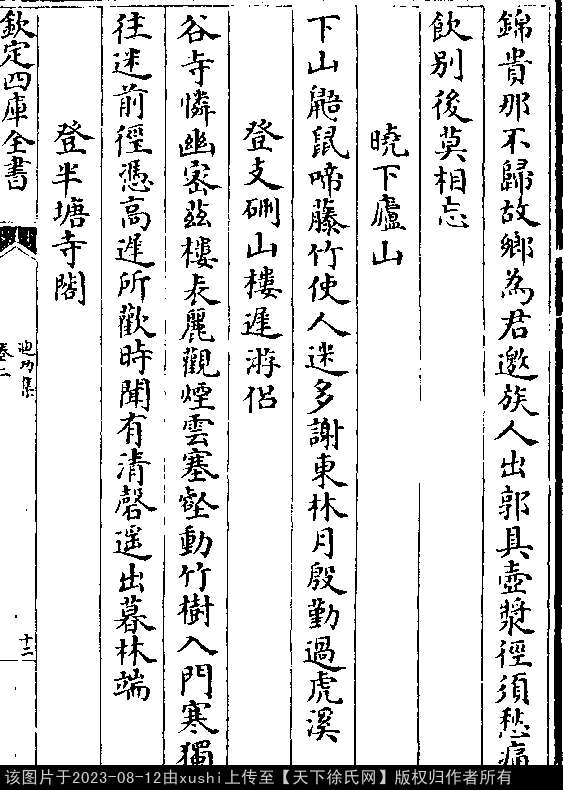 錦貴那不歸故鄉為君邀族人出郭具壺漿徑須愁痛
飲别後莫相忘
曉下廬山
下山鼯鼠啼藤竹使人迷多謝東林月殷勤過虎溪
登支硎山樓遲游侶
谷寺憐幽宻茲樓表麗觀煙雲塞壑動竹樹入門寒獨
往迷前徑憑高遲所歡時聞有清磬遥出暮林端
登半塘寺閣
欽定四庫全書
迪功集
卷二
十二
该图片于2023-08-12由xushi上传至【天下徐氏网】版权归作者所有